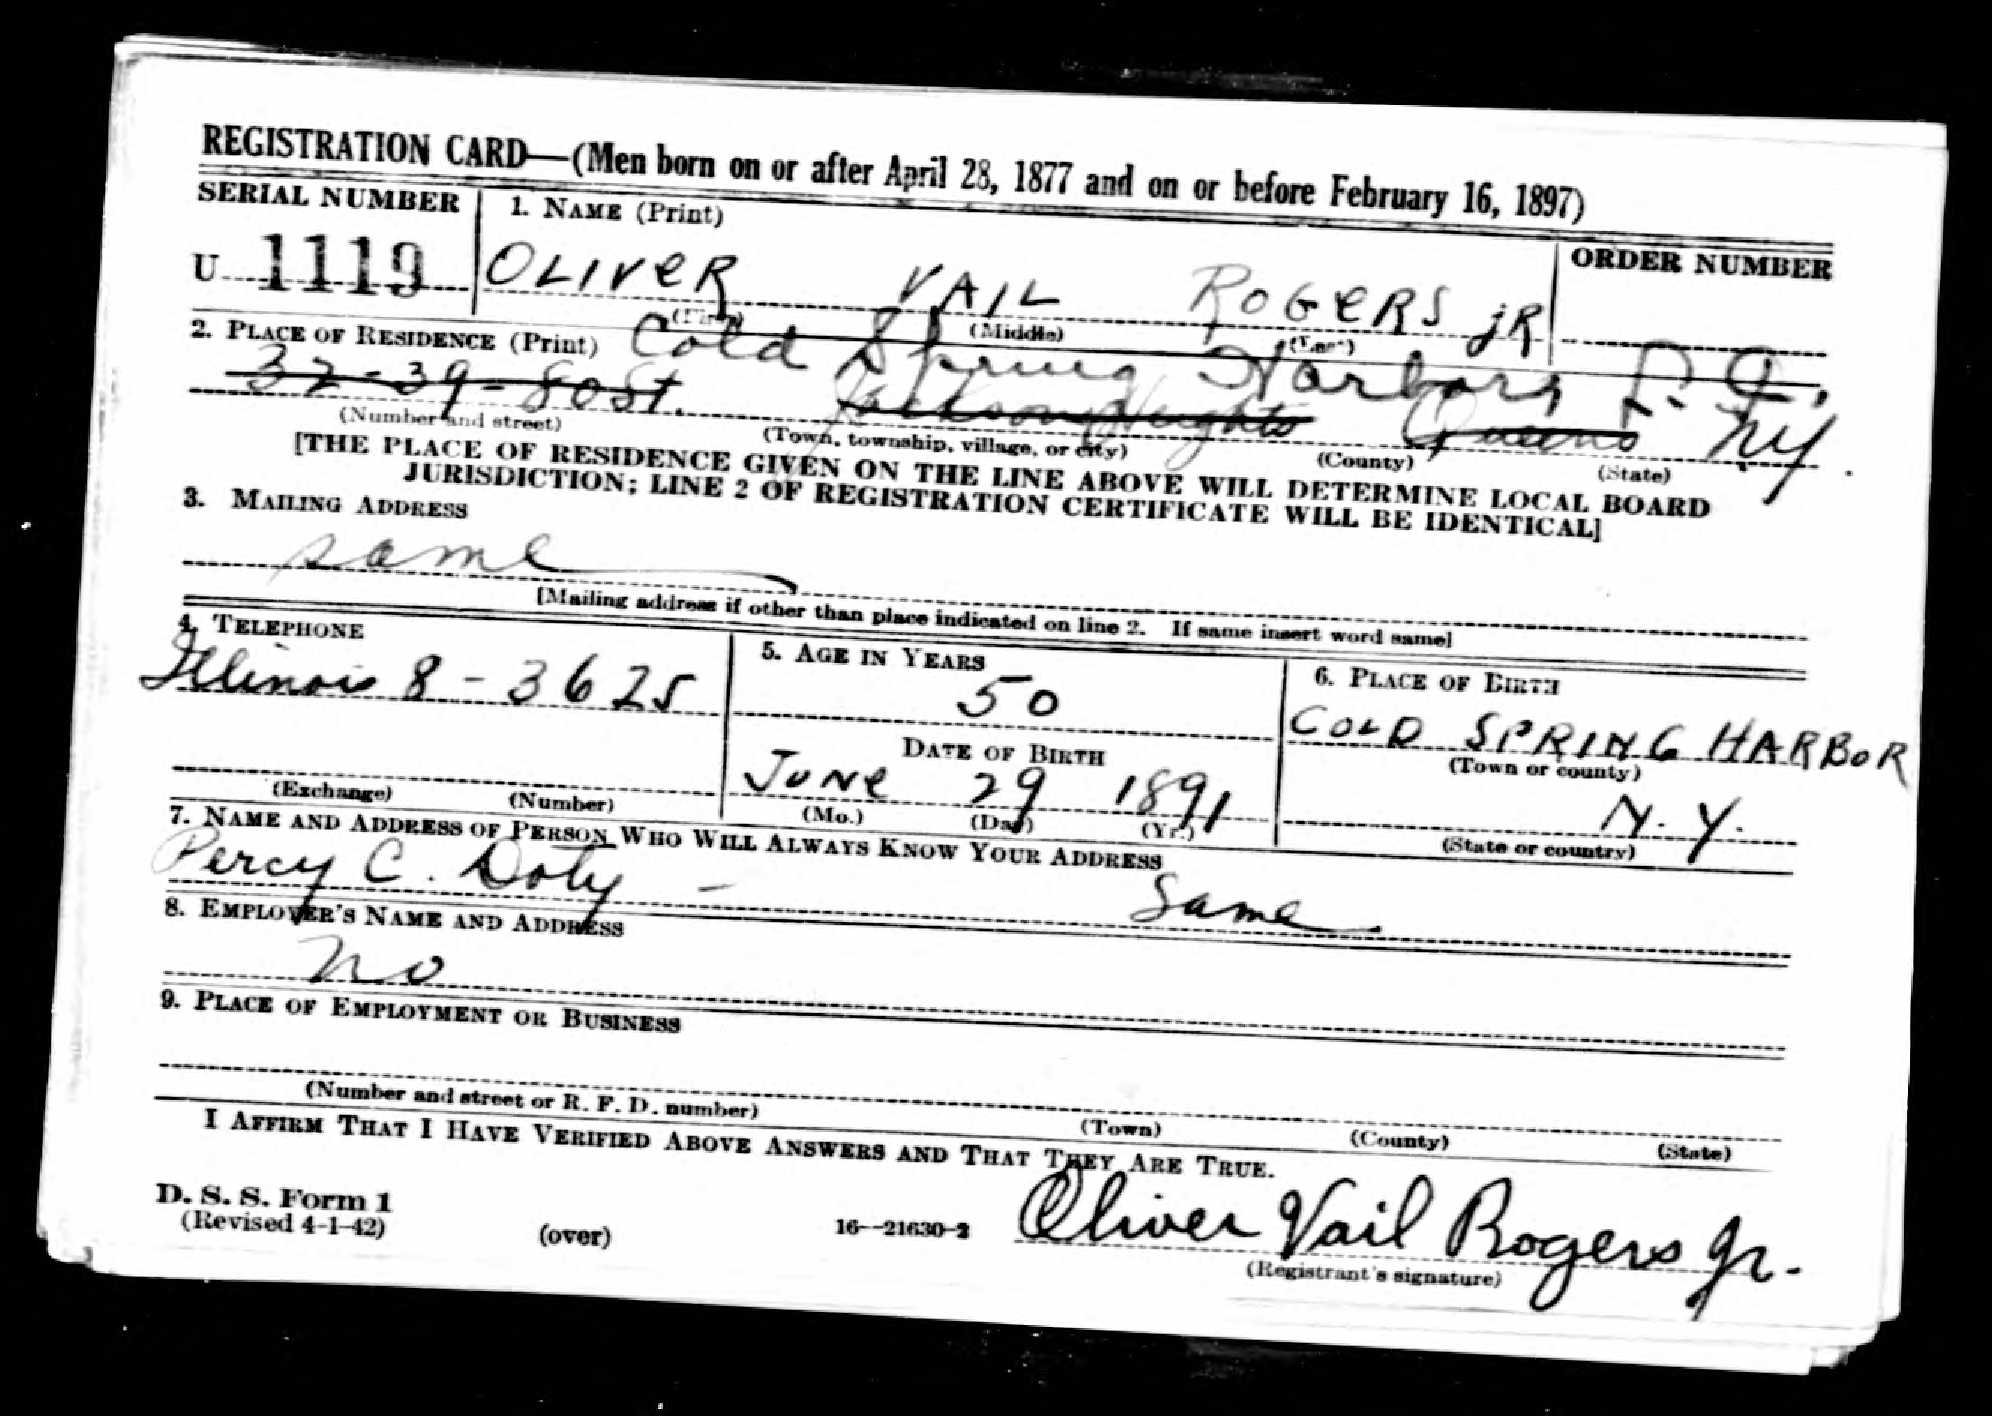 REGISTRATION CARD—(Men born on or after April 28, 1877 and on or before February 16, 1897)
SERIAL NUMBER
1. NAME (Print)
ORDER NUMBER
U 1119
OLIVER VAIL ROGERS JR
(First) (Middle) (Last)
2. PLACE OF RESIDENCE (Print)
Cold Spring Harbor, L. I.
32-39-80 St. Jackson Heights Queens N.Y.
(Number and street) (Town, township, village, or city) (County) (State)
[THE PLACE OF RESIDENCE GIVEN ON THE LINE ABOVE WILL DETERMINE LOCAL BOARD
JURISDICTION; LINE 2 OF REGISTRATION CERTIFICATE WILL BE IDENTICAL]
3. MAILING ADDRESS
same
[Mailing address if other than place indicated on line 2. If same insert word same]
4. TELEPHONE
Illinois 8-3625
(Exchange) (Number)
5. AGE IN YEARS
50
DATE OF BIRTH
JUNE 29 1891
(Mo.) (Day) (Yr.)
6. PLACE OF BIRTH
COLD SPRING HARBOR
(Town or county)
N. Y.
(State or country)
7. NAME AND ADDRESS OF PERSON WHO WILL ALWAYS KNOW YOUR ADDRESS
Percy C. Doty - Same
8. EMPLOYER'S NAME AND ADDRESS
no
9. PLACE OF EMPLOYMENT OR BUSINESS
(Number and street or R. F. D. number) (Town) (County) (State)
I AFFIRM THAT I HAVE VERIFIED ABOVE ANSWERS AND THAT THEY ARE TRUE.
D. S. S. Form 1
(Revised 4-1-42) (over) 16—21630-2
Oliver Vail Rogers Jr.
(Registrant's signature)